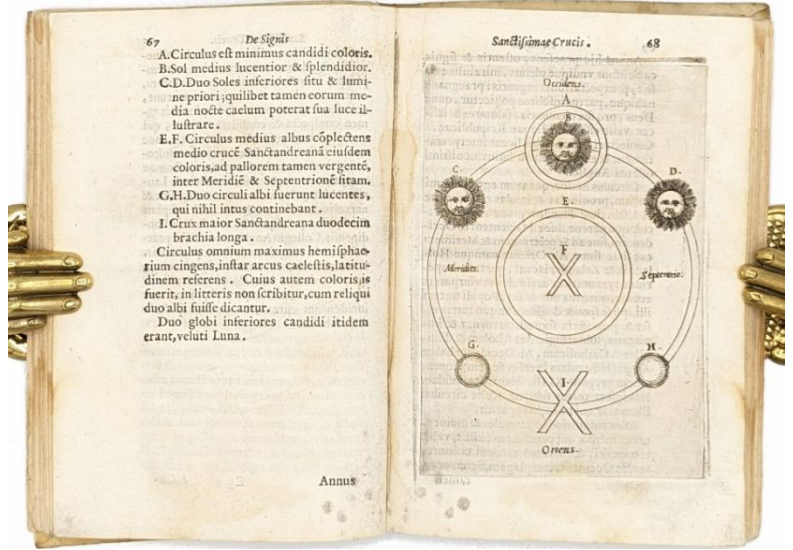 67 De Signis
A.Circulus est minimus candidi coloris.
B.Sol medius lucentior & splendidior.
C.D.Duo Soles inferiores situ & lumi-
ne priori;quilibet tamen eorum me-
dia nocte caelum poterat sua luce il-
lustrare.
E.F. Circulus medius albus cōplectens
medio crucē Sanctandreanā eiusdem
coloris,ad pallorem tamen vergentē,
inter Meridiē & Septentrionē sitam.
G.H.Duo circuli albi fuerunt lucentes,
qui nihil intus continebant.
I. Crux maior Sanctandreana duodecim
brachia longa.
Circulus omnium maximus hemisphae-
rium cingens,instar arcus caelestis,latitu-
dinem referens. Cuius autem coloris is
fuerit, in litteris non scribitur,cum reliqui
duo albi fuisse dicantur.
Duo globi inferiores candidi itidem
erant,veluti Luna.
Annus
Sanctissimae Crucis. 68
Occidens.
A
B
C.
D.
E
F
Meridies.
Septentrio.
G.
H.
I.
Oriens.